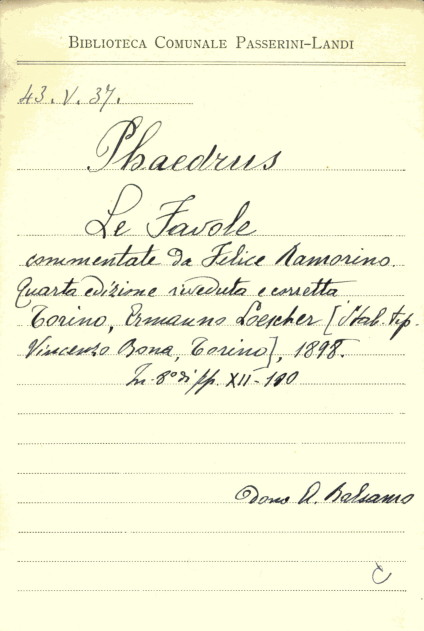 BIBLIOTECA COMUNALE PASSERINI-LANDI
43. V. 37.
Phaedrus
Le Favole
commentate da Felice Ramorino.
Quarta edizione riveduta e corretta
Torino, Ermanno Loescher [Stab. tip.
Vincenzo Bona, Torino], 1898.
In-8° di pp. XII-190
Dono A. Balsamo
C